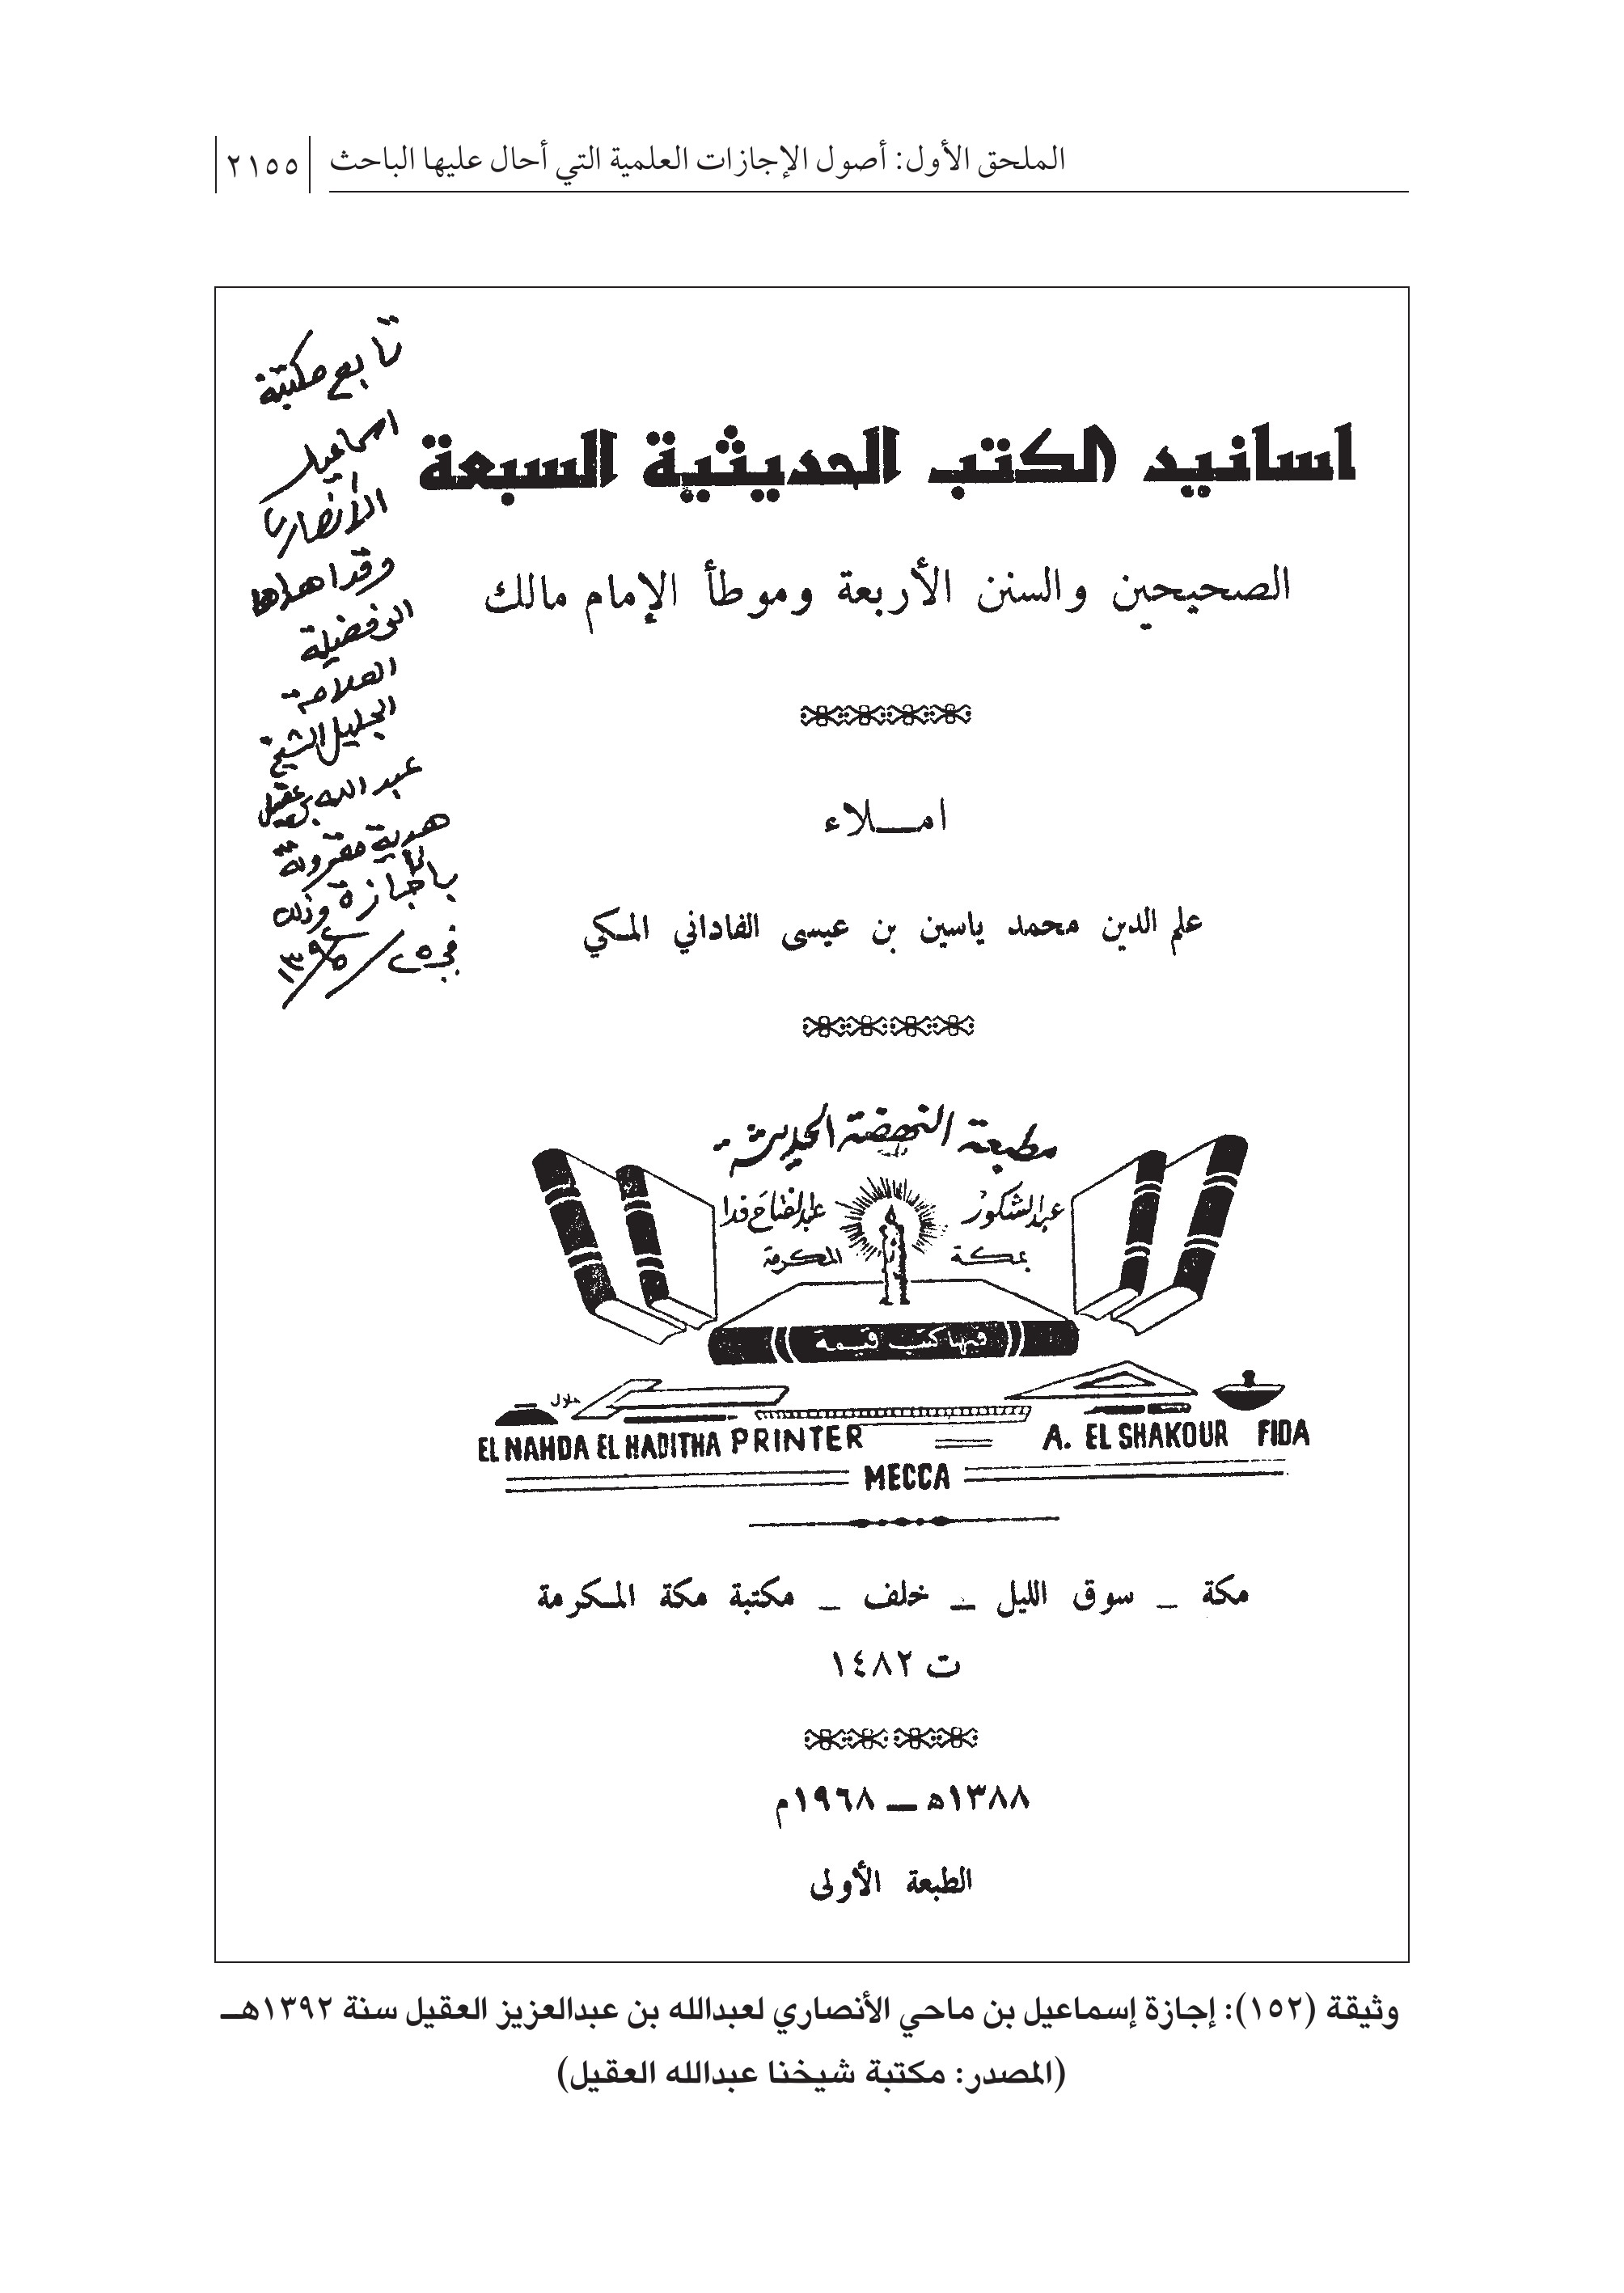 الملحق الأول: أصول الإجازات العلمية التي أحال عليها الباحث
٢١٥٥
تابع مكتبة
اسماعيل
الأنصاري
وقد اهداها
الى فضيلة
العلامة
الجليل الشيخ
عبد الله بن عقيل
هدية مقرونة
بالأجازة وذلك
في
اسانيد الكتب الحديثية السبعة
الصحيحين والسنن الأربعة وموطأ الإمام مالك
امـــلاء
علم الدين محمد ياسين بن عيسى الفاداني المكي
مطبعة النهضة الحديثة
عبد الشكور عبد الفتاح فدا
بمكة المكرمة
فيها كتب قيمة
هلال
EL NAHDA EL HADITHA PRINTER A. EL SHAKOUR FIDA
MECCA
مكة _ سوق الليل _ خلف _ مكتبة مكة المكرمة
ت ١٤٨٢
١٣٨٨ه — ١٩٦٨م
الطبعة الأولى
وثيقة (١٥٢): إجازة إسماعيل بن ماحي الأنصاري لعبدالله بن عبدالعزيز العقيل سنة ١٣٩٢هـ
(المصدر: مكتبة شيخنا عبدالله العقيل)